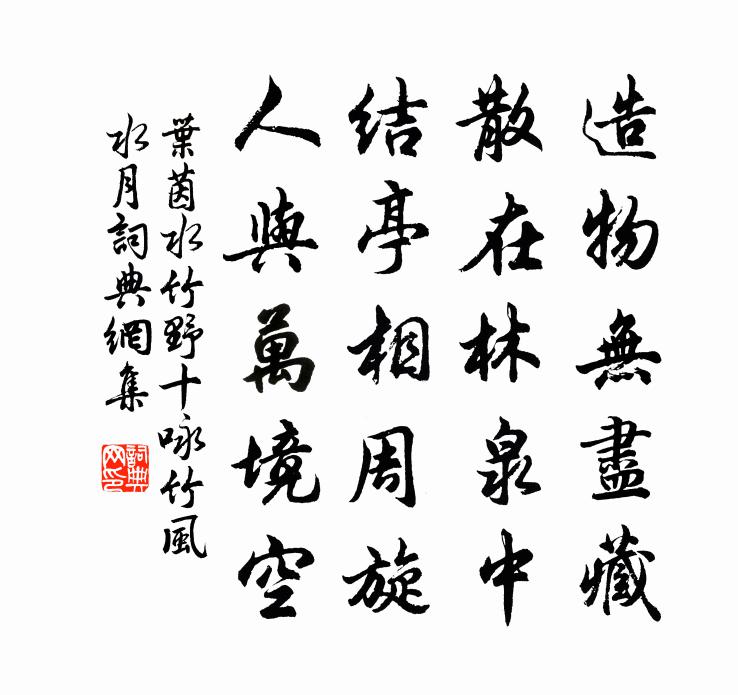 造物無盡藏
散在林泉中
结亭相周旋
人與萬境空
葉茵水竹野十咏竹風
水月詞典網集
詞典
网印